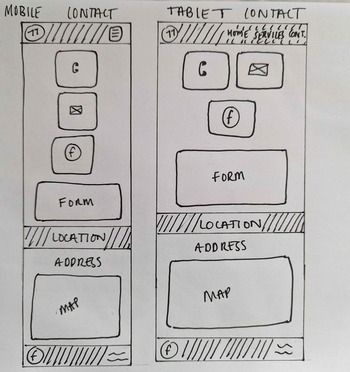 MOBILE CONTACT
77
f
FORM
LOCATION
ADDRESS
MAP
f
TABLET CONTACT
77
HOME SERVICES CONT.
f
FORM
LOCATION
ADDRESS
MAP
f